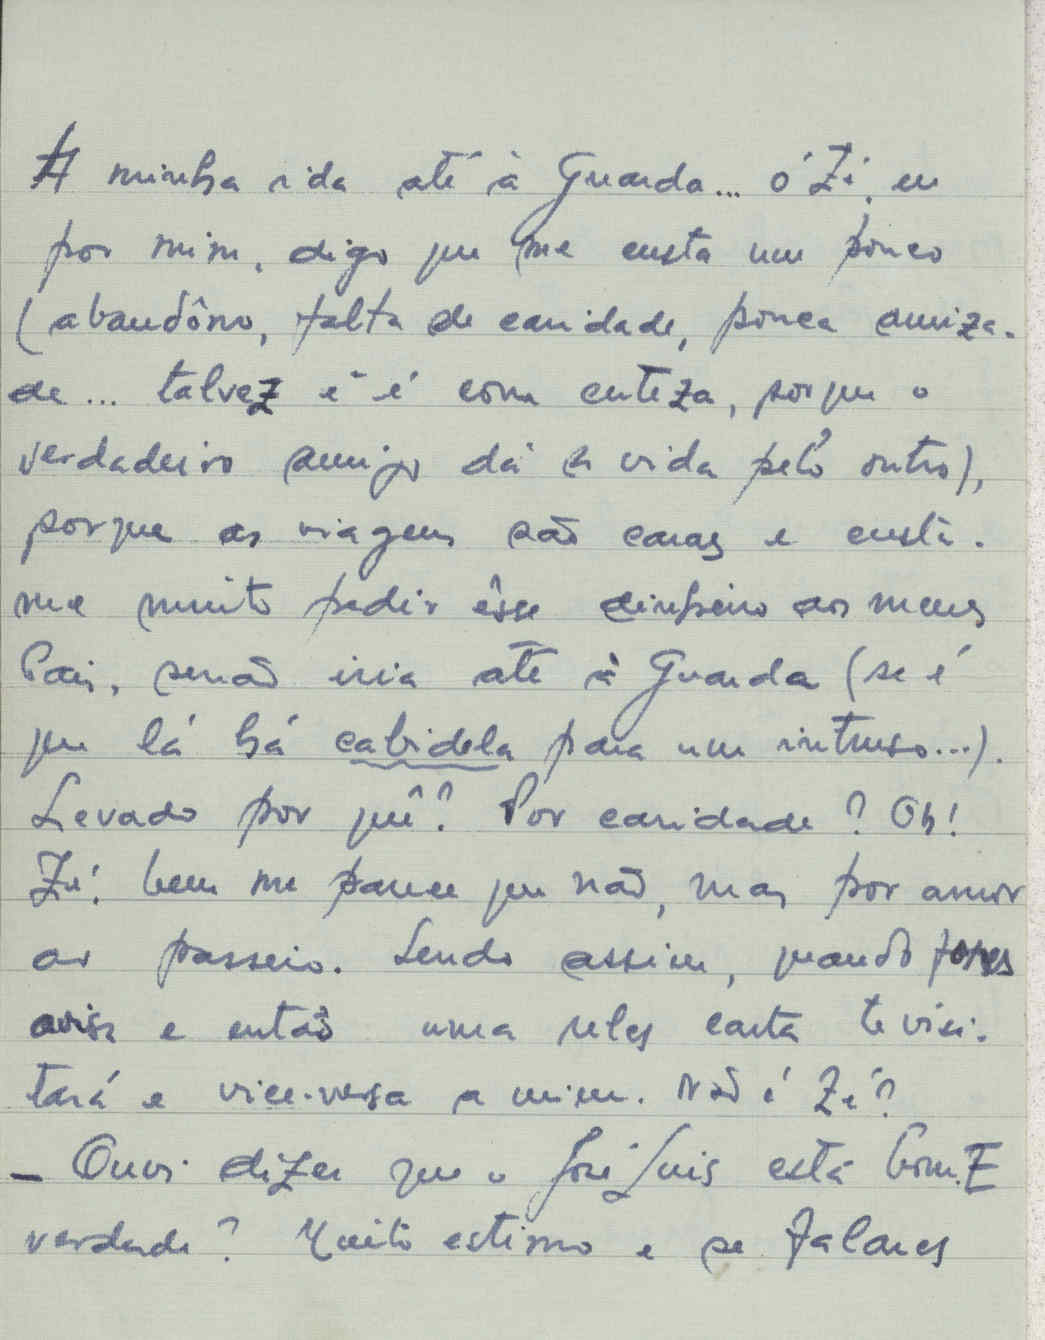 A minha ida até à Guarda... ó Zé, eu
por mim, digo que me custa um pouco
(abandôno, falta de caridade, pouca amiza-
de... talvez e é com certeza, porque o
verdadeiro amigo dá a vida pelo outro),
porque as viagens são caras e custa-
me muito pedir êsse dinheiro aos meus
Pais, senão iria até à Guarda (se é
que lá há cabidela para um intruso...).
Levado por quê? Por caridade? Oh!
Zé! bem me parece que não, mas por amor
ao passeio. Sendo assim, quando fores
avisa e então uma reles carta te visi-
tará e vice-versa a mim. Não é Zé?
- Ouvi dizer que o José Luis está bom. É
verdade? Muito estimo e se falares